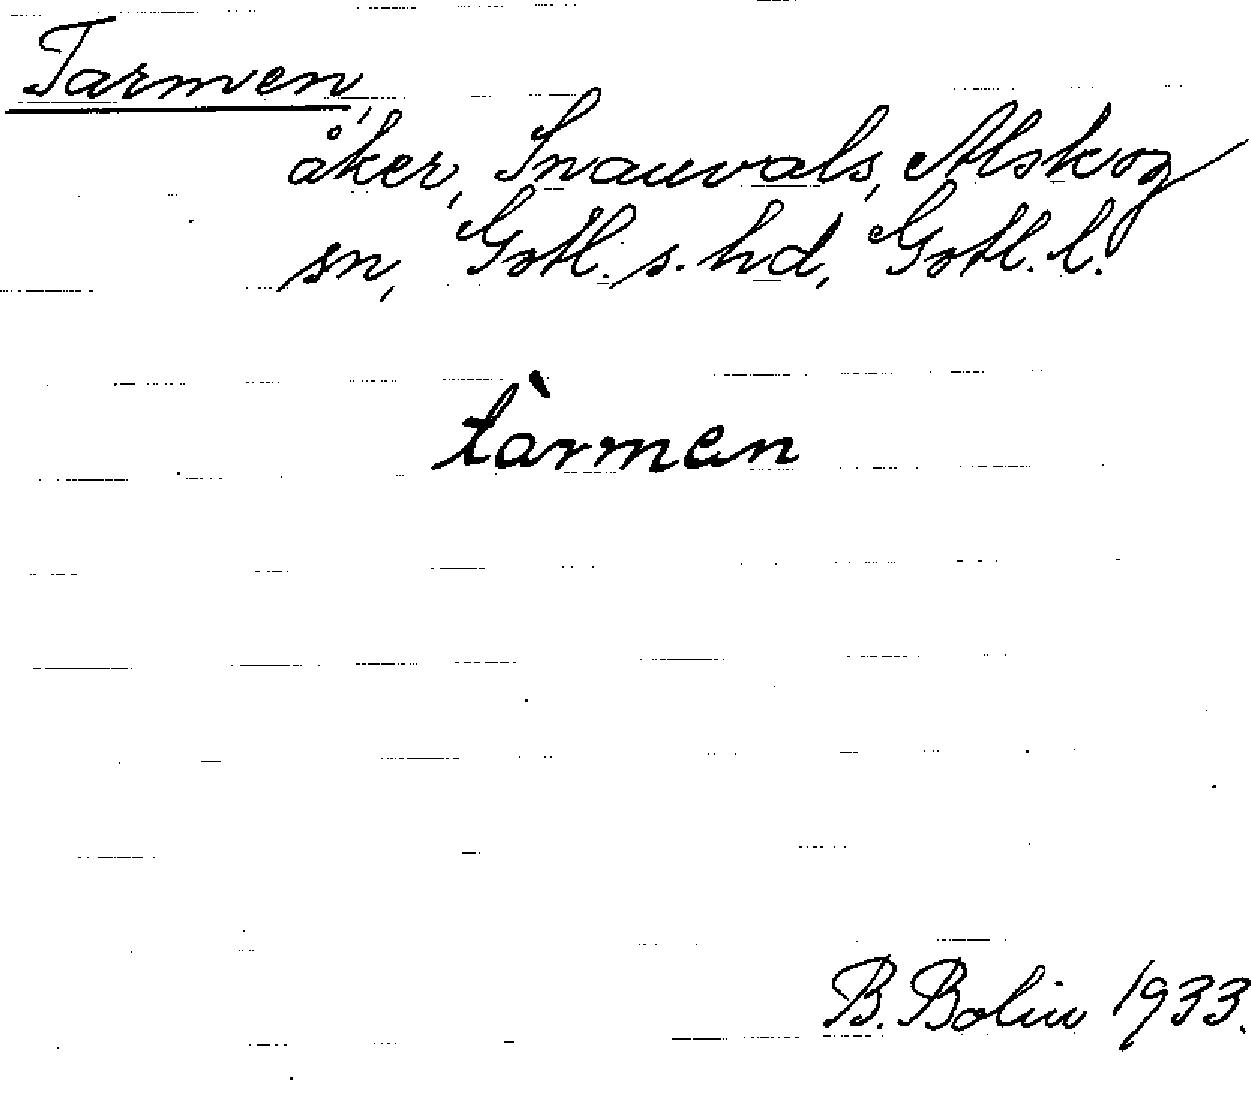 Tarmen,
åker, Snauvals, Alskog
sn, Gotl. s. hd, Gotl. l.
tàrmen
B. Bolin 1933.